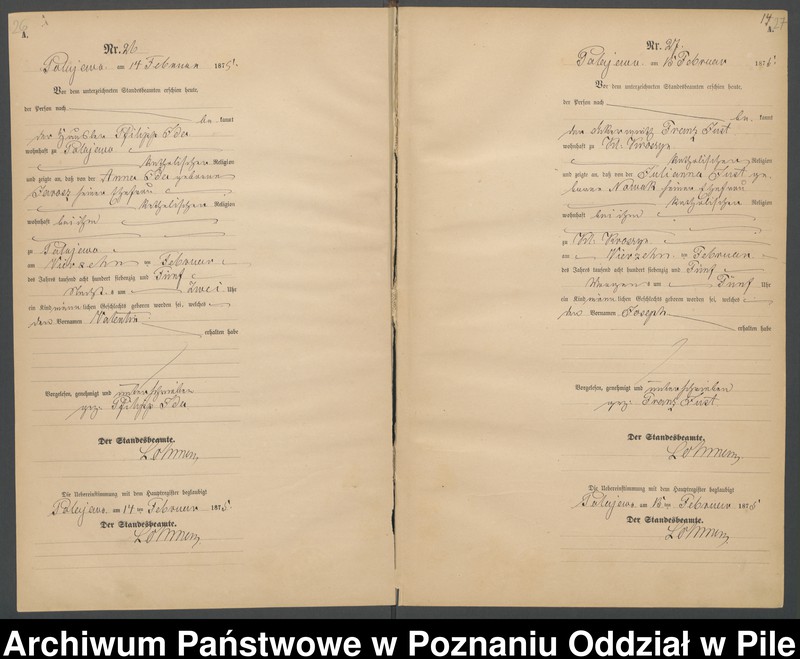 26
A.
Nr. 26
Polajewo am 14 Februar 1875.
Vor dem unterzeichneten Standesbeamten erschien heute,
der Person nach
be kannt
der Häusler Philipp Ida
wohnhaft zu Polajewo
katholischer Religion
und zeigte an, daß von der Anna Ida geborene
seiner Ehefrau
katholischer Religion
wohnhaft bei ihm
zu Polajewo
am Vierzehn ten Februar
des Jahres tausend acht hundert siebenzig und Fünf
Nachts um Zwei Uhr
ein Kind männlichen Geschlechts geboren worden sei, welches
den Vornamen Valentin
erhalten habe
Vorgelesen, genehmigt und unterschrieben
gez. Philipp Ida
Der Standesbeamte.
Die Uebereinstimmung mit dem Hauptregister beglaubigt
Polajewo am 14 ten Februar 1875.
Der Standesbeamte.
14 27
A.
Nr. 27.
Polajewo am Februar 1875.
Vor dem unterzeichneten Standesbeamten erschien heute,
der Person nach
be kannt
der Ackerwirth Franz Just
wohnhaft zu Kl. Kroszyn
katholischer Religion
und zeigte an, daß von der Julianna Just ge-
borene Nowak seiner Ehefrau
katholischer Religion
wohnhaft bei ihm
zu Kl. Kroszyn
am Vierzehn ten Februar
des Jahres tausend acht hundert siebenzig und Fünf
Morgens um Fünf Uhr
ein Kind männlichen Geschlechts geboren worden sei, welches
den Vornamen Joseph
erhalten habe
Vorgelesen, genehmigt und unterschrieben
gez. Franz Just.
Der Standesbeamte.
Die Uebereinstimmung mit dem Hauptregister beglaubigt
Polajewo am ten Februar 1875
Der Standesbeamte.
Archiwum Państwowe w Poznaniu Oddział w Pile